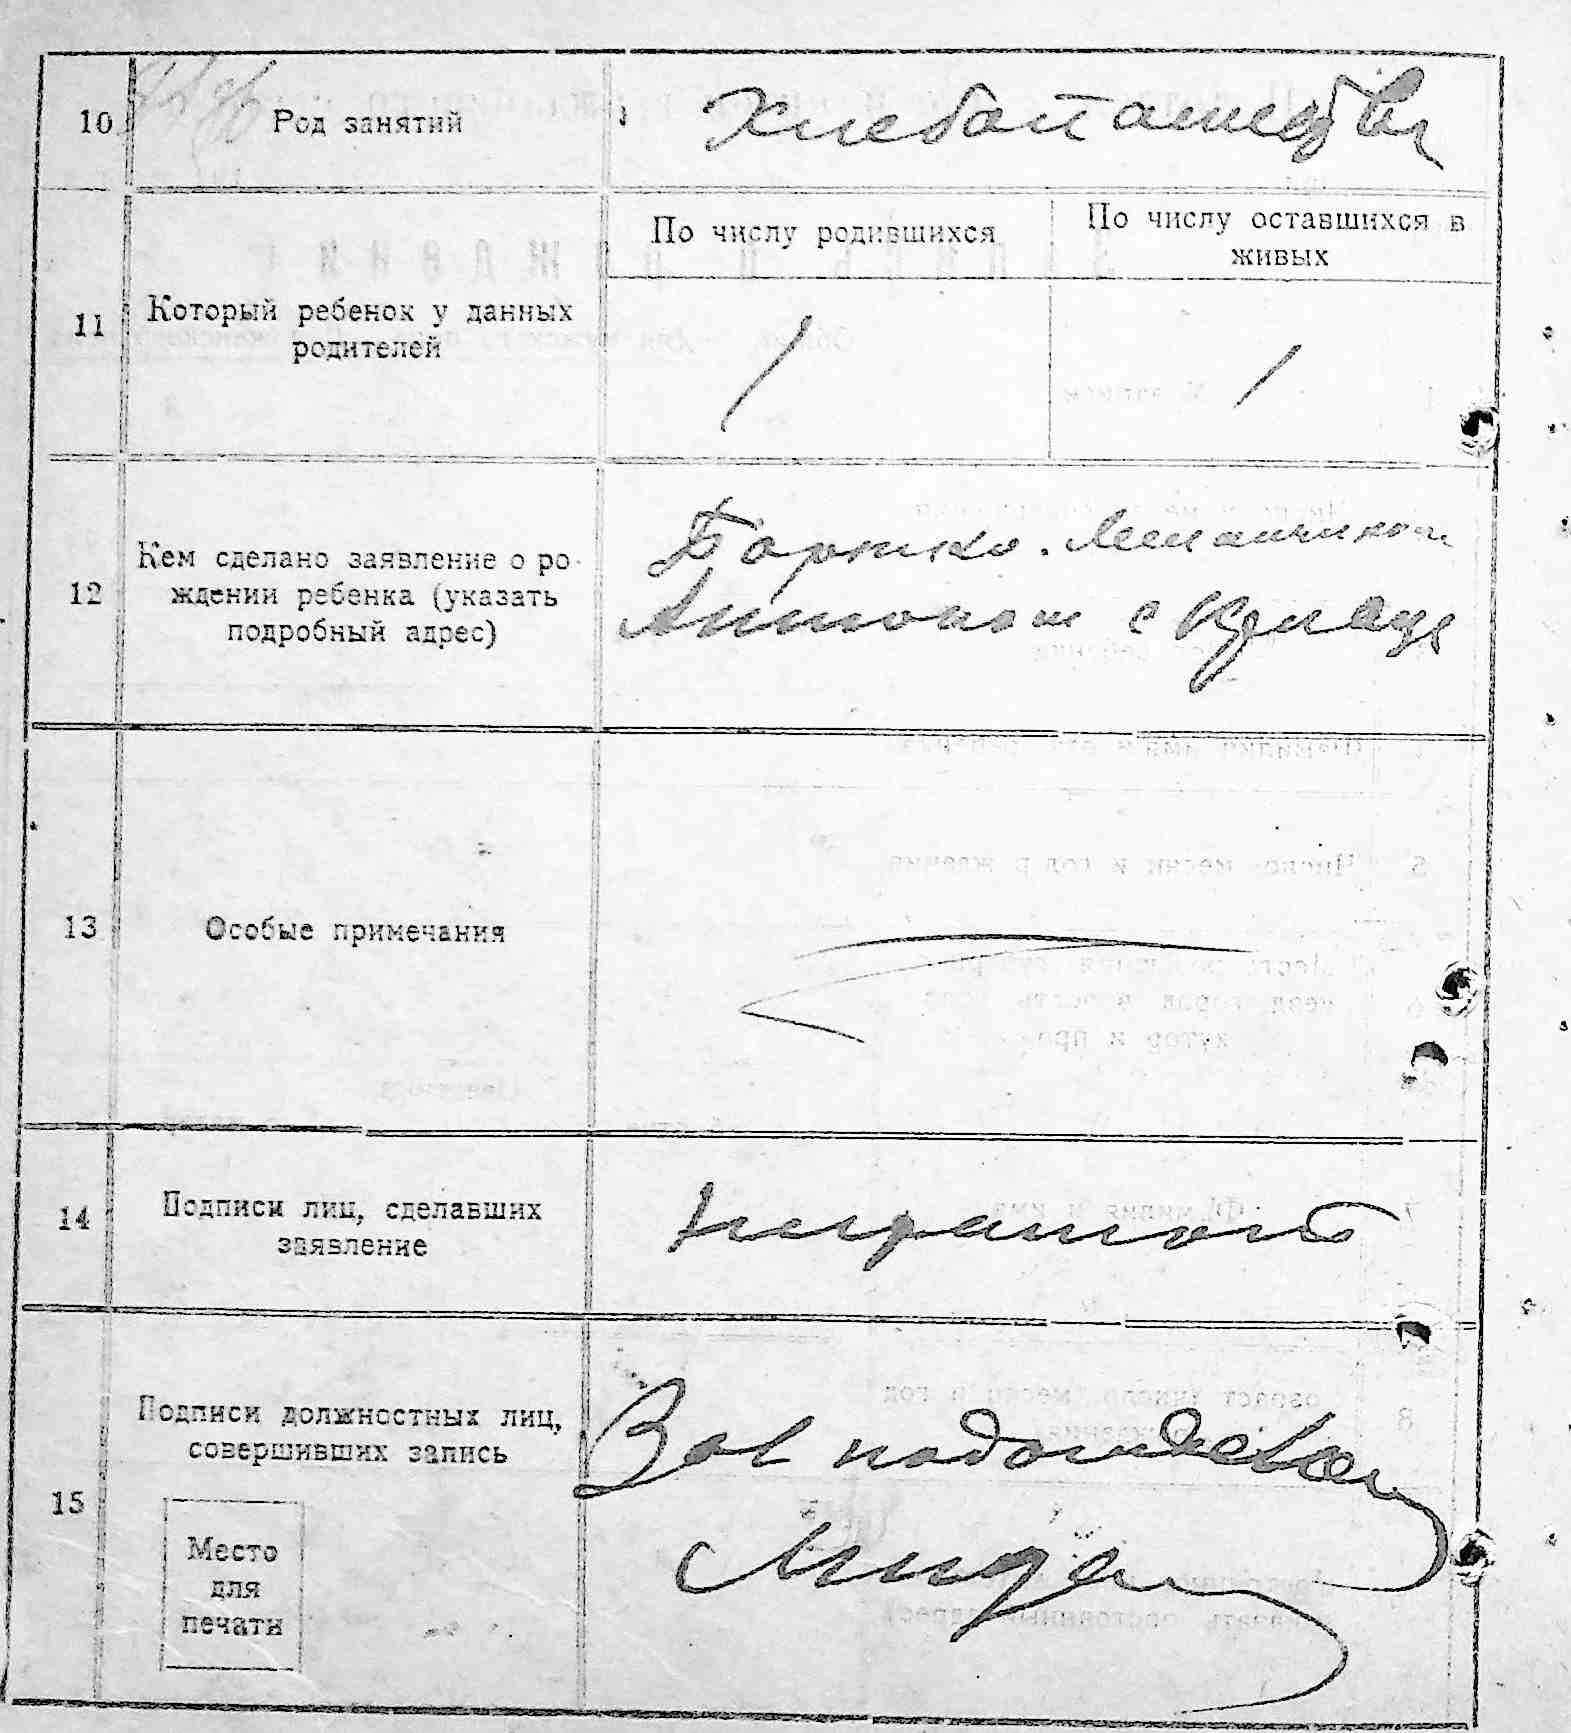 10
Род занятий
Хлебопашество
11
Который ребенок у данных
родителей
По числу родившихся
По числу оставшихся в
живых
1
1
12
Кем сделано заявление о ро-
ждении ребенка (указать
подробный адрес)
13
Особые примечания
14
Подписи лиц, сделавших
заявление
неграмотн
15
Подписи должностных лиц,
совершивших запись
Место
для
печати
Зав подотделом